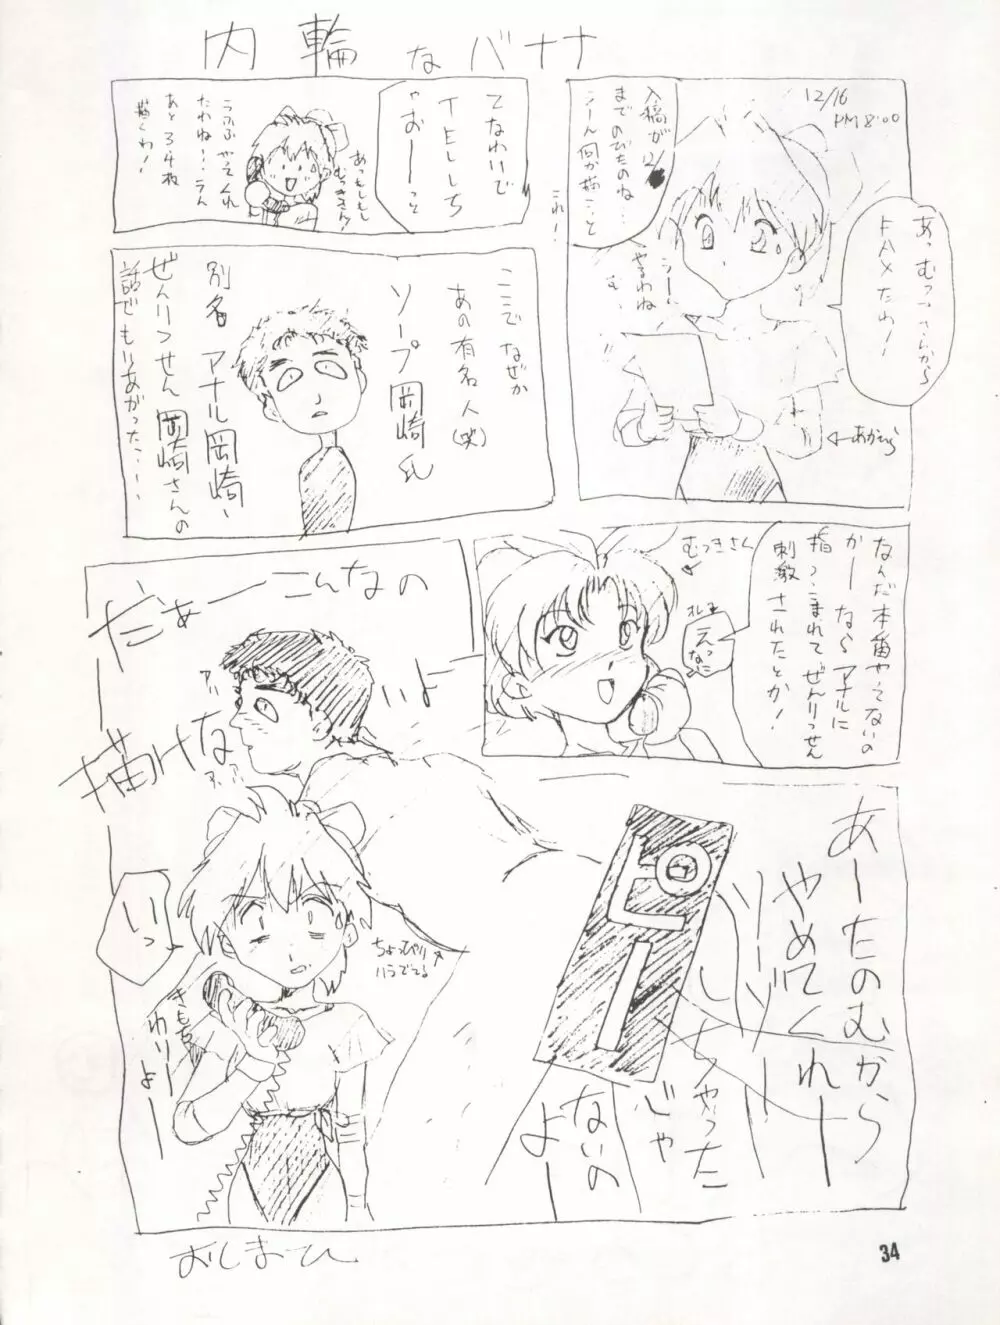 内輪なバナナ
12/16
PM 8:00
あっ むつきさんから
FAXだわ!
入稿が12/
までのびたのね…
うーん何か描こっと
うーん
やるわね
む
これ!
←あかほら
てなわけで
TELしち
ゃおーっと
あっもしもし
むつきさん?
うふふ
たわね!!
あと34枚
描くわ!
ここでなぜか
あの有名人(笑)
ソープ岡崎氏
別名 アナル岡崎、
ぜんりつせん岡崎さんの
話でもりあがった…!
なんだ本番やってないの
かーなら アナルに
指つっこまれて ぜんりつせん
刺激されたとか!
むつきさん
えっ
なに
だぁーこんなの
描けないよー
アハ
ア、ア、
ちょっぴり
ハラでてる
いっ
きもち
わりーよー
ピー
あーたのむから
やめてくれー
ソーゾー
しちゃった
じゃ
ないの
よー
おしまひ
34